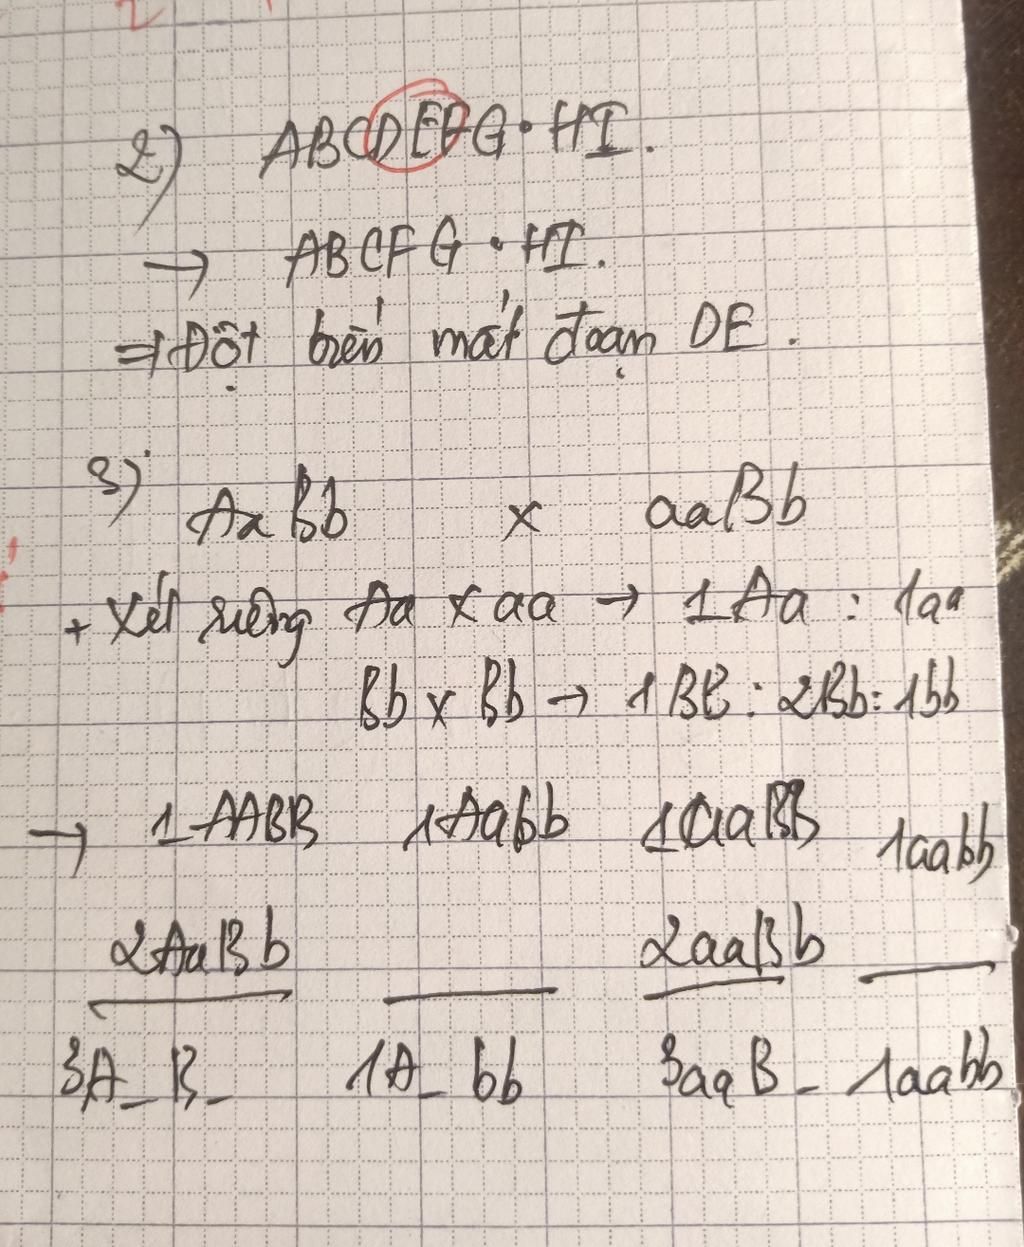 2) ABCDEFG • HI.
→ ABCFG • HI.
⇒ Đột biến mất đoạn DE.
3) AaBb x aaBb
+ Xét riêng Aa x aa → 1Aa : 1aa
Bb x Bb → 1BB : 2Bb : 1bb
→ 1AABB 1Aabb 1aaBB 1aabb
2AaBb 2aaBb
3A_B_ 1A_bb 3aaB_ 1aabb